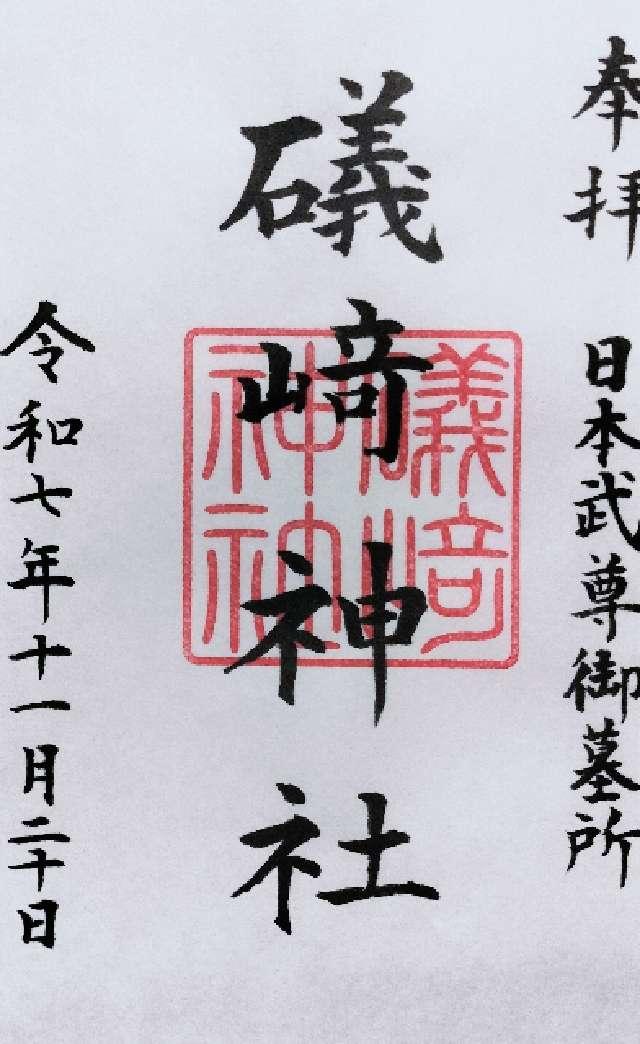 奉拝
日本武尊御墓所
礒﨑神社
令和七年十一月二十日